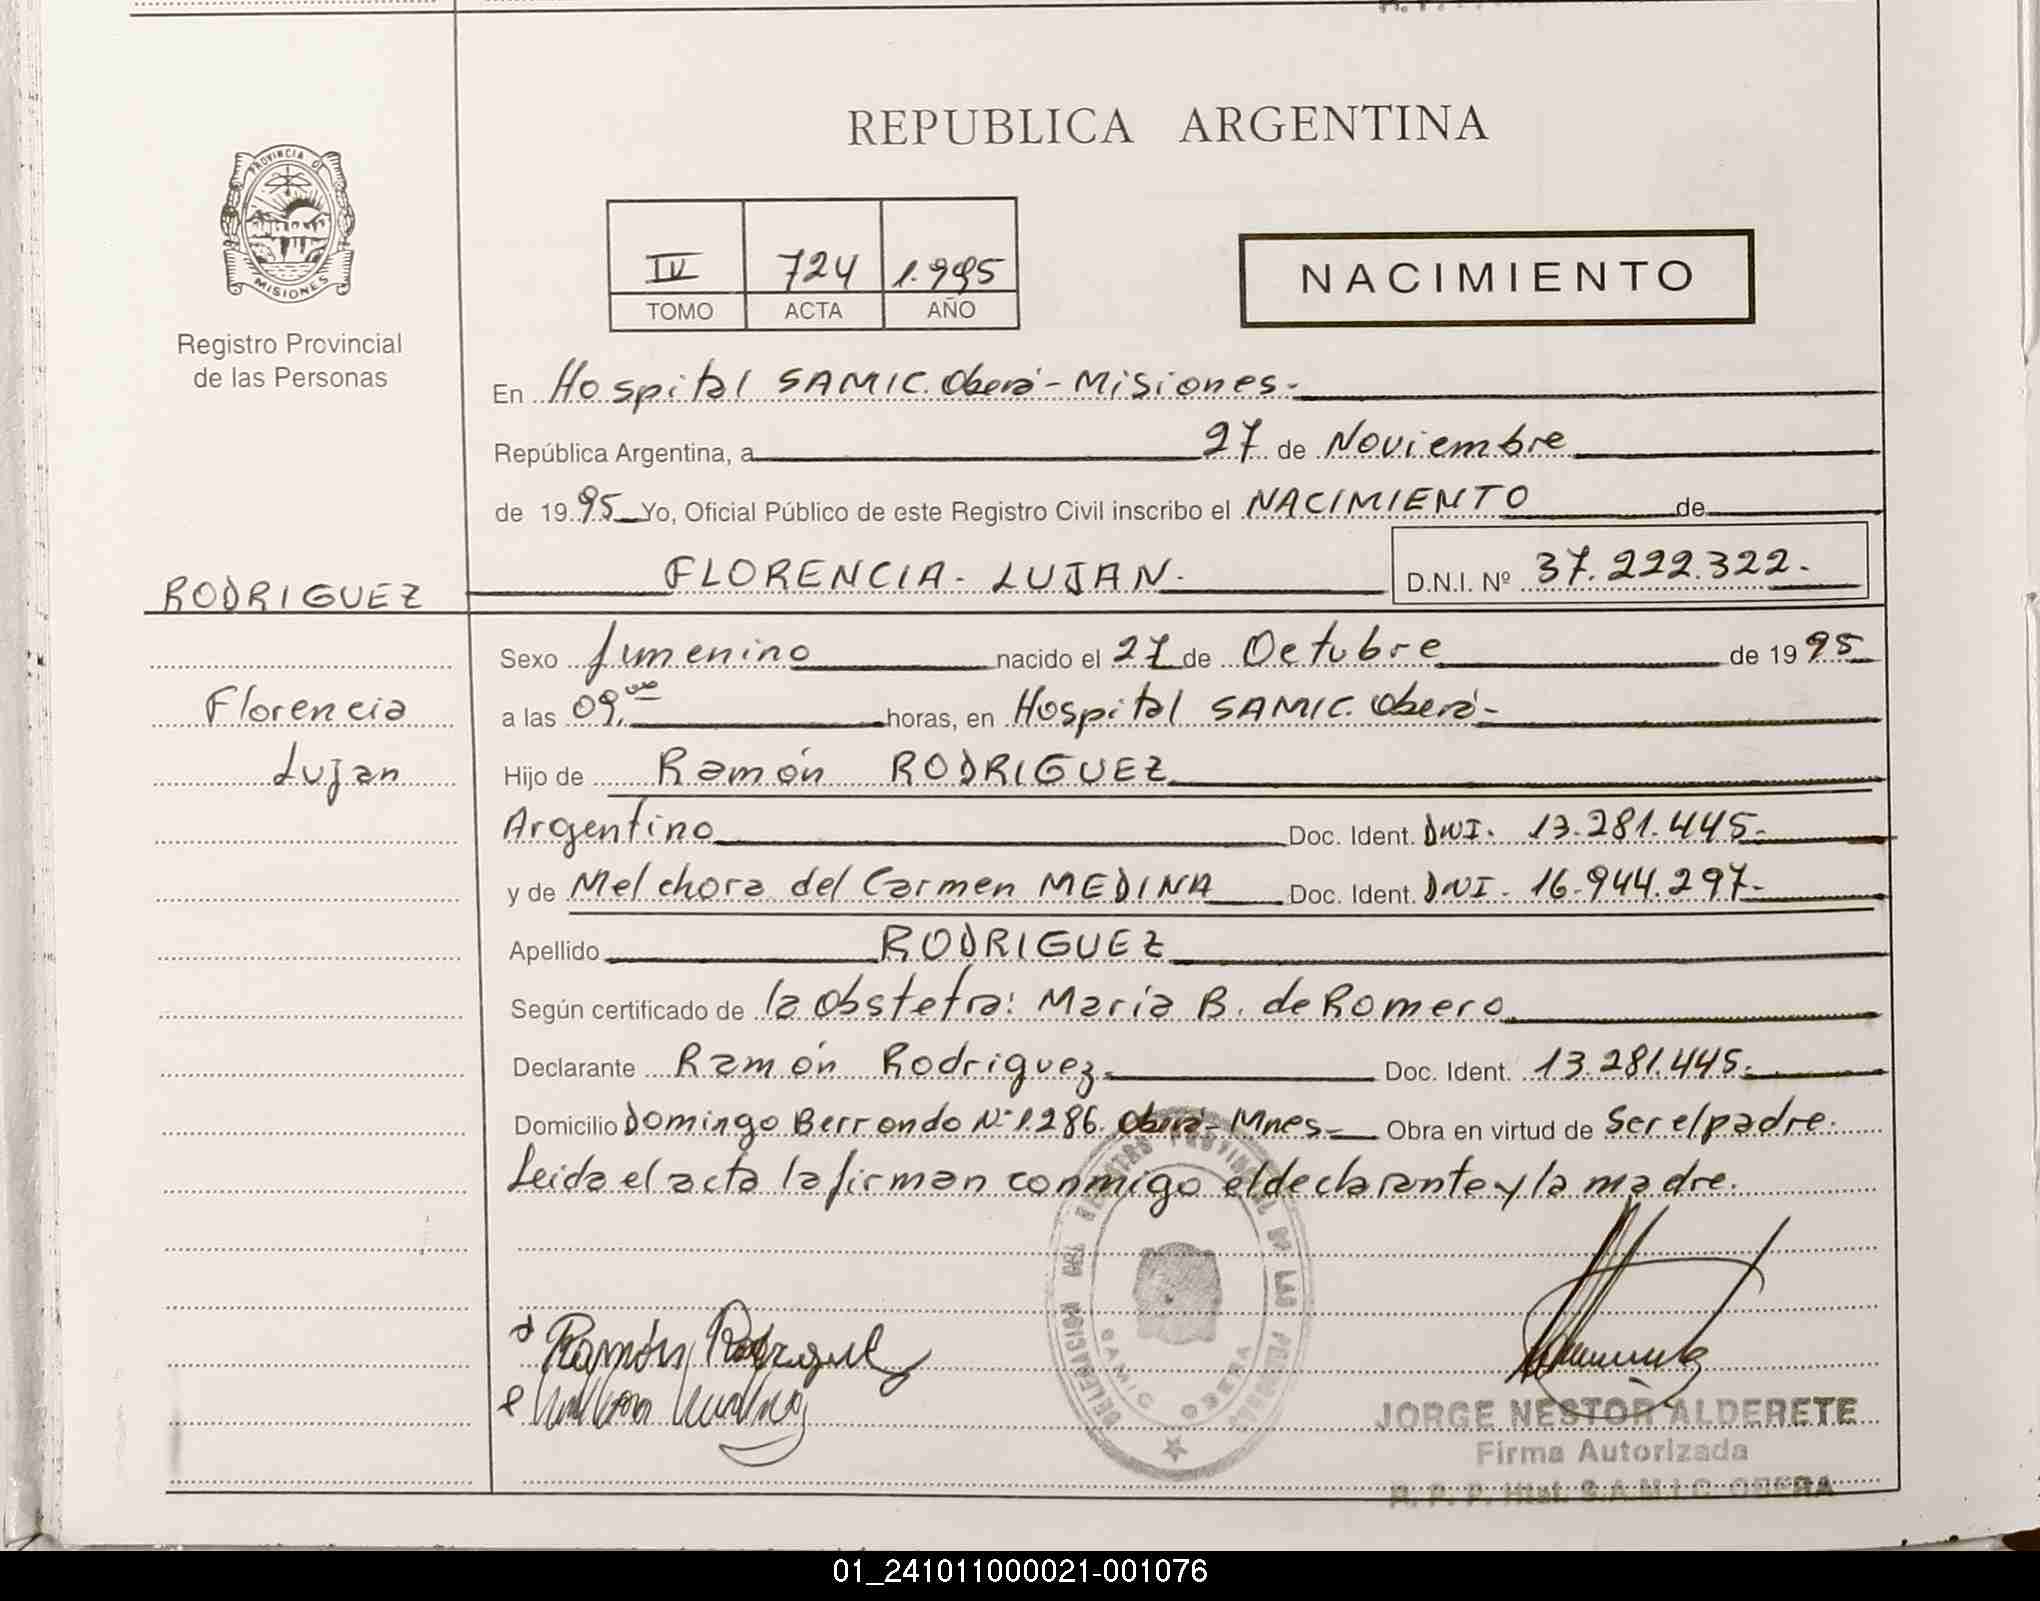 REPUBLICA ARGENTINA
PROVINCIA DE
MISIONES
Registro Provincial
de las Personas
IV 724 1.995
TOMO ACTA AÑO
NACIMIENTO
En Hospital SAMIC. Oberá - Misiones.
República Argentina, a 27 de Noviembre
de 1995 Yo, Oficial Público de este Registro Civil inscribo el NACIMIENTO de
RODRIGUEZ FLORENCIA. LUJAN. D.N.I. Nº 37.222.322.
Sexo femenino nacido el 27 de Octubre de 1995
Florencia a las 09,00 horas, en Hospital SAMIC. Oberá -
Lujan Hijo de Ramón RODRIGUEZ
Argentino Doc. Ident. DNI. 13.281.445.
y de Melchora del Carmen MEDINA Doc. Ident. DNI. 16.944.297.
Apellido RODRIGUEZ
Según certificado de la Obstetra: Maria B. de Romero
Declarante Ramón Rodriguez. Doc. Ident. 13.281.445.
Domicilio Domingo Berrondo Nº 1.286. Oberá - Mnes. Obra en virtud de Ser el padre.
Leida el acta la firman conmigo el declarante y la madre.
DELEGACION DEL REGISTRO PROVINCIAL DE LAS PERSONAS
SAMIC OBERA
Ramón Rodriguez
JORGE NESTOR ALDERETE
Firma Autorizada
R. P. P. Htal. S.A.M.I.C. OBERA
01_241011000021-001076